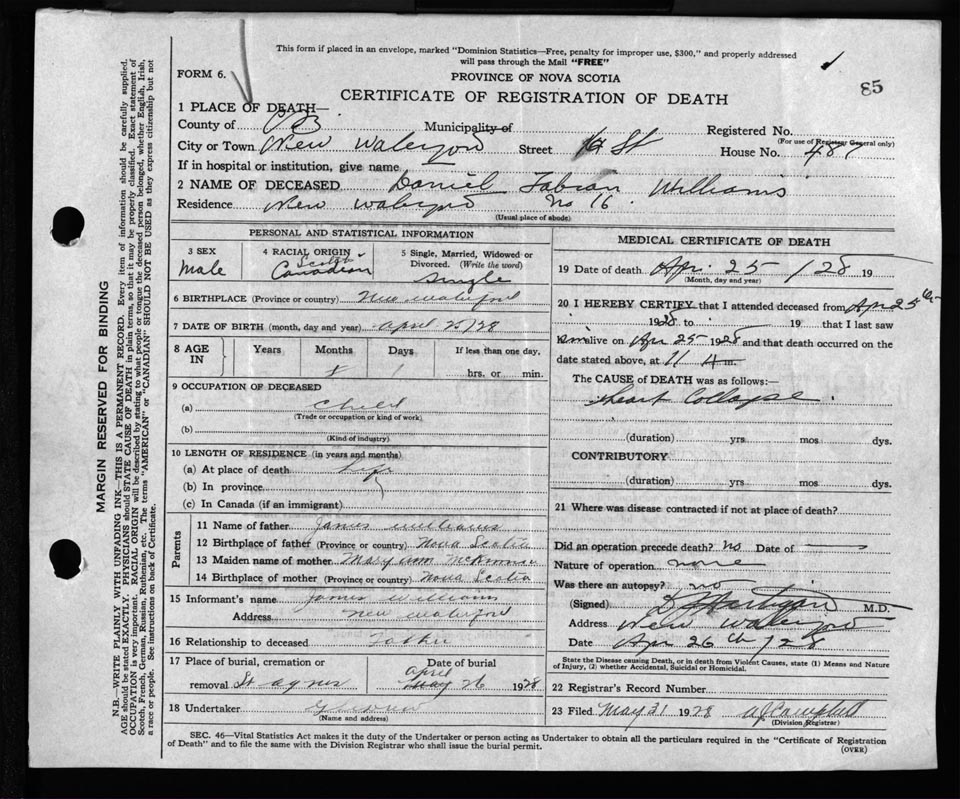 This form if placed in an envelope, marked "Dominion Statistics—Free, penalty for improper use, $300," and properly addressed
will pass through the Mail "FREE"
FORM 6.
PROVINCE OF NOVA SCOTIA
85
CERTIFICATE OF REGISTRATION OF DEATH
1 PLACE OF DEATH—
County of C B. Municipality of Registered No.
(For use of Registrar General only)
City or Town New Waterford Street 16 St House No. 487
If in hospital or institution, give name
2 NAME OF DECEASED Daniel Fabian Williams
Residence New Waterford No 16.
(Usual place of abode)
PERSONAL AND STATISTICAL INFORMATION
3 SEX
Male
4 RACIAL ORIGIN
Scotch
Canadian
5 Single, Married, Widowed or
Divorced. (Write the word)
Single
6 BIRTHPLACE (Province or country) New Waterford
7 DATE OF BIRTH (month, day and year) April 25/28
8 AGE IN
Years Months Days If less than one day,
1
hrs. or min.
9 OCCUPATION OF DECEASED
(a) Child
(Trade or occupation or kind of work)
(b)
(Kind of industry)
10 LENGTH OF RESIDENCE (in years and months)
(a) At place of death life
(b) In province
(c) In Canada (if an immigrant)
Parents
11 Name of father James Williams
12 Birthplace of father (Province or country) Nova Scotia
13 Maiden name of mother Mary Ann McKinnon
14 Birthplace of mother (Province or country) Nova Scotia
15 Informant's name James Williams
Address New Waterford
16 Relationship to deceased Father
17 Place of burial, cremation or
removal St Agnes
Date of burial
April
May 26 1928
18 Undertaker
(Name and address)
MEDICAL CERTIFICATE OF DEATH
19 Date of death Apr. 25 /28 19
(Month, day and year)
20 I HEREBY CERTIFY that I attended deceased from Apr 25th
1928 to 19 that I last saw
him alive on Apr 25 1928 and that death occurred on the
date stated above, at 11 A m.
The CAUSE of DEATH was as follows:—
Heart Collapse.
(duration) yrs mos dys.
CONTRIBUTORY
(duration) yrs. mos. dys.
21 Where was disease contracted if not at place of death?
Did an operation precede death? No Date of
Nature of operation none
Was there an autopsy? no
(Signed) Hartigan M.D.
Address New Waterford
Date Apr 26th /28
State the Disease causing Death, or in death from Violent Causes, state (1) Means and Nature
of Injury, (2) whether Accidental, Suicidal or Homicidal.
22 Registrar's Record Number
23 Filed May 31 1928 A J Campbell
(Division Registrar)
SEC. 46—Vital Statistics Act makes it the duty of the Undertaker or person acting as Undertaker to obtain all the particulars required in the "Certificate of Registration
of Death" and to file the same with the Division Registrar who shall issue the burial permit.
(OVER)
MARGIN RESERVED FOR BINDING
N.B.—WRITE PLAINLY WITH UNFADING INK—THIS IS A PERMANENT RECORD. Every item of information should be carefully supplied.
AGE should be stated EXACTLY. PHYSICIANS should STATE CAUSE OF DEATH in plain terms, so that it may be properly classified. Exact statement of
OCCUPATION is very important. RACIAL ORIGIN will be described by stating to what people or tongue the deceased person belonged, whether English, Irish,
Scotch, French, German, Russian, Ruthenian, etc. The terms "AMERICAN" or "CANADIAN" SHOULD NOT BE USED as they express citizenship but not
a race or people. See instructions on back of Certificate.